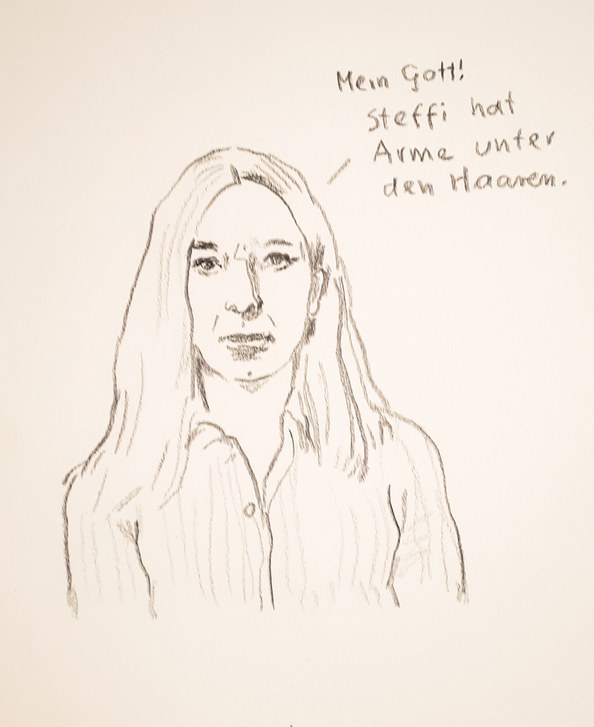 Mein Gott!
Steffi hat
Arme unter
den Haaren.